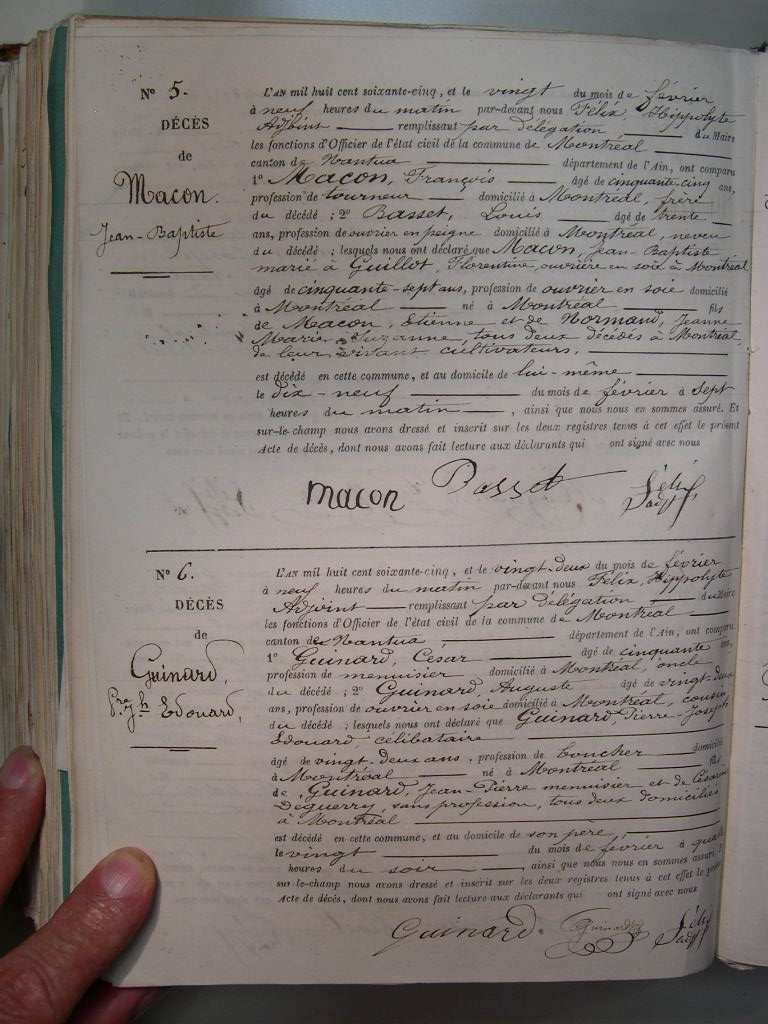 N° 5.
DÉCÈS
de
Macon.
Jean-Baptiste
L'AN mil huit cent soixante-cinq, et le vingt du mois de février
à neuf heures du matin par-devant nous Félix, Hippolyte
Adjoint remplissant par délégation du Maire
les fonctions d'Officier de l'état civil de la commune de Montréal
canton de Nantua département de l'Ain, ont comparu
1° Macon, François âgé de cinquante-cinq ans,
profession de tourneur domicilié à Montréal, frère
du décédé ; 2° Basset, Louis âgé de trente
ans, profession de ouvrier en peigne domicilié à Montréal, neveu
du décédé ; lesquels nous ont déclaré que Macon, Jean-Baptiste
marié à Guillot, Florentine, ouvrière en soie à Montréal
âgé de cinquante-sept ans, profession de ouvrier en soie domicilié
à Montréal né à Montréal fils
de Macon, Etienne et de Normand, Jeanne
Marie Suzanne, tous deux décédés à Montréal,
de leur vivant cultivateurs,
est décédé en cette commune, et au domicile de lui-même
le dix-neuf du mois de février à sept
heures du matin, ainsi que nous nous en sommes assuré. Et
sur-le-champ nous avons dressé et inscrit sur les deux registres tenus à cet effet le présent
Acte de décès, dont nous avons fait lecture aux déclarants qui ont signé avec nous
macon Basset Félix
adjt
N° 6.
DÉCÈS
de
Guinard,
Pre Jh Edouard,
L'AN mil huit cent soixante-cinq, et le vingt-deux du mois de février
à neuf heures du matin par-devant nous Félix, Hippolyte
Adjoint remplissant par délégation du Maire
les fonctions d'Officier de l'état civil de la commune de Montréal
canton de Nantua, département de l'Ain, ont comparu
1° Guinard, César âgé de cinquante ans,
profession de menuisier domicilié à Montréal, oncle
du décédé ; 2° Guinard, Auguste âgé de vingt-deux
ans, profession de ouvrier en soie domicilié à Montréal, cousin
du décédé ; lesquels nous ont déclaré que Guinard Pierre-Joseph
Edouard, célibataire
âgé de vingt-deux ans, profession de boucher domicilié
à Montréal né à Montréal fils
de Guinard, Jean-Pierre menuisier et de Césarine
Deguerry, sans profession, tous deux domiciliés
à Montréal
est décédé en cette commune, et au domicile de son père,
le vingt du mois de février à quatre
heures du soir, ainsi que nous nous en sommes assuré.
sur-le-champ nous avons dressé et inscrit sur les deux registres tenus à cet effet le présent
Acte de décès, dont nous avons fait lecture aux déclarants qui ont signé avec nous
Guinard. Guinard Félix
adjt